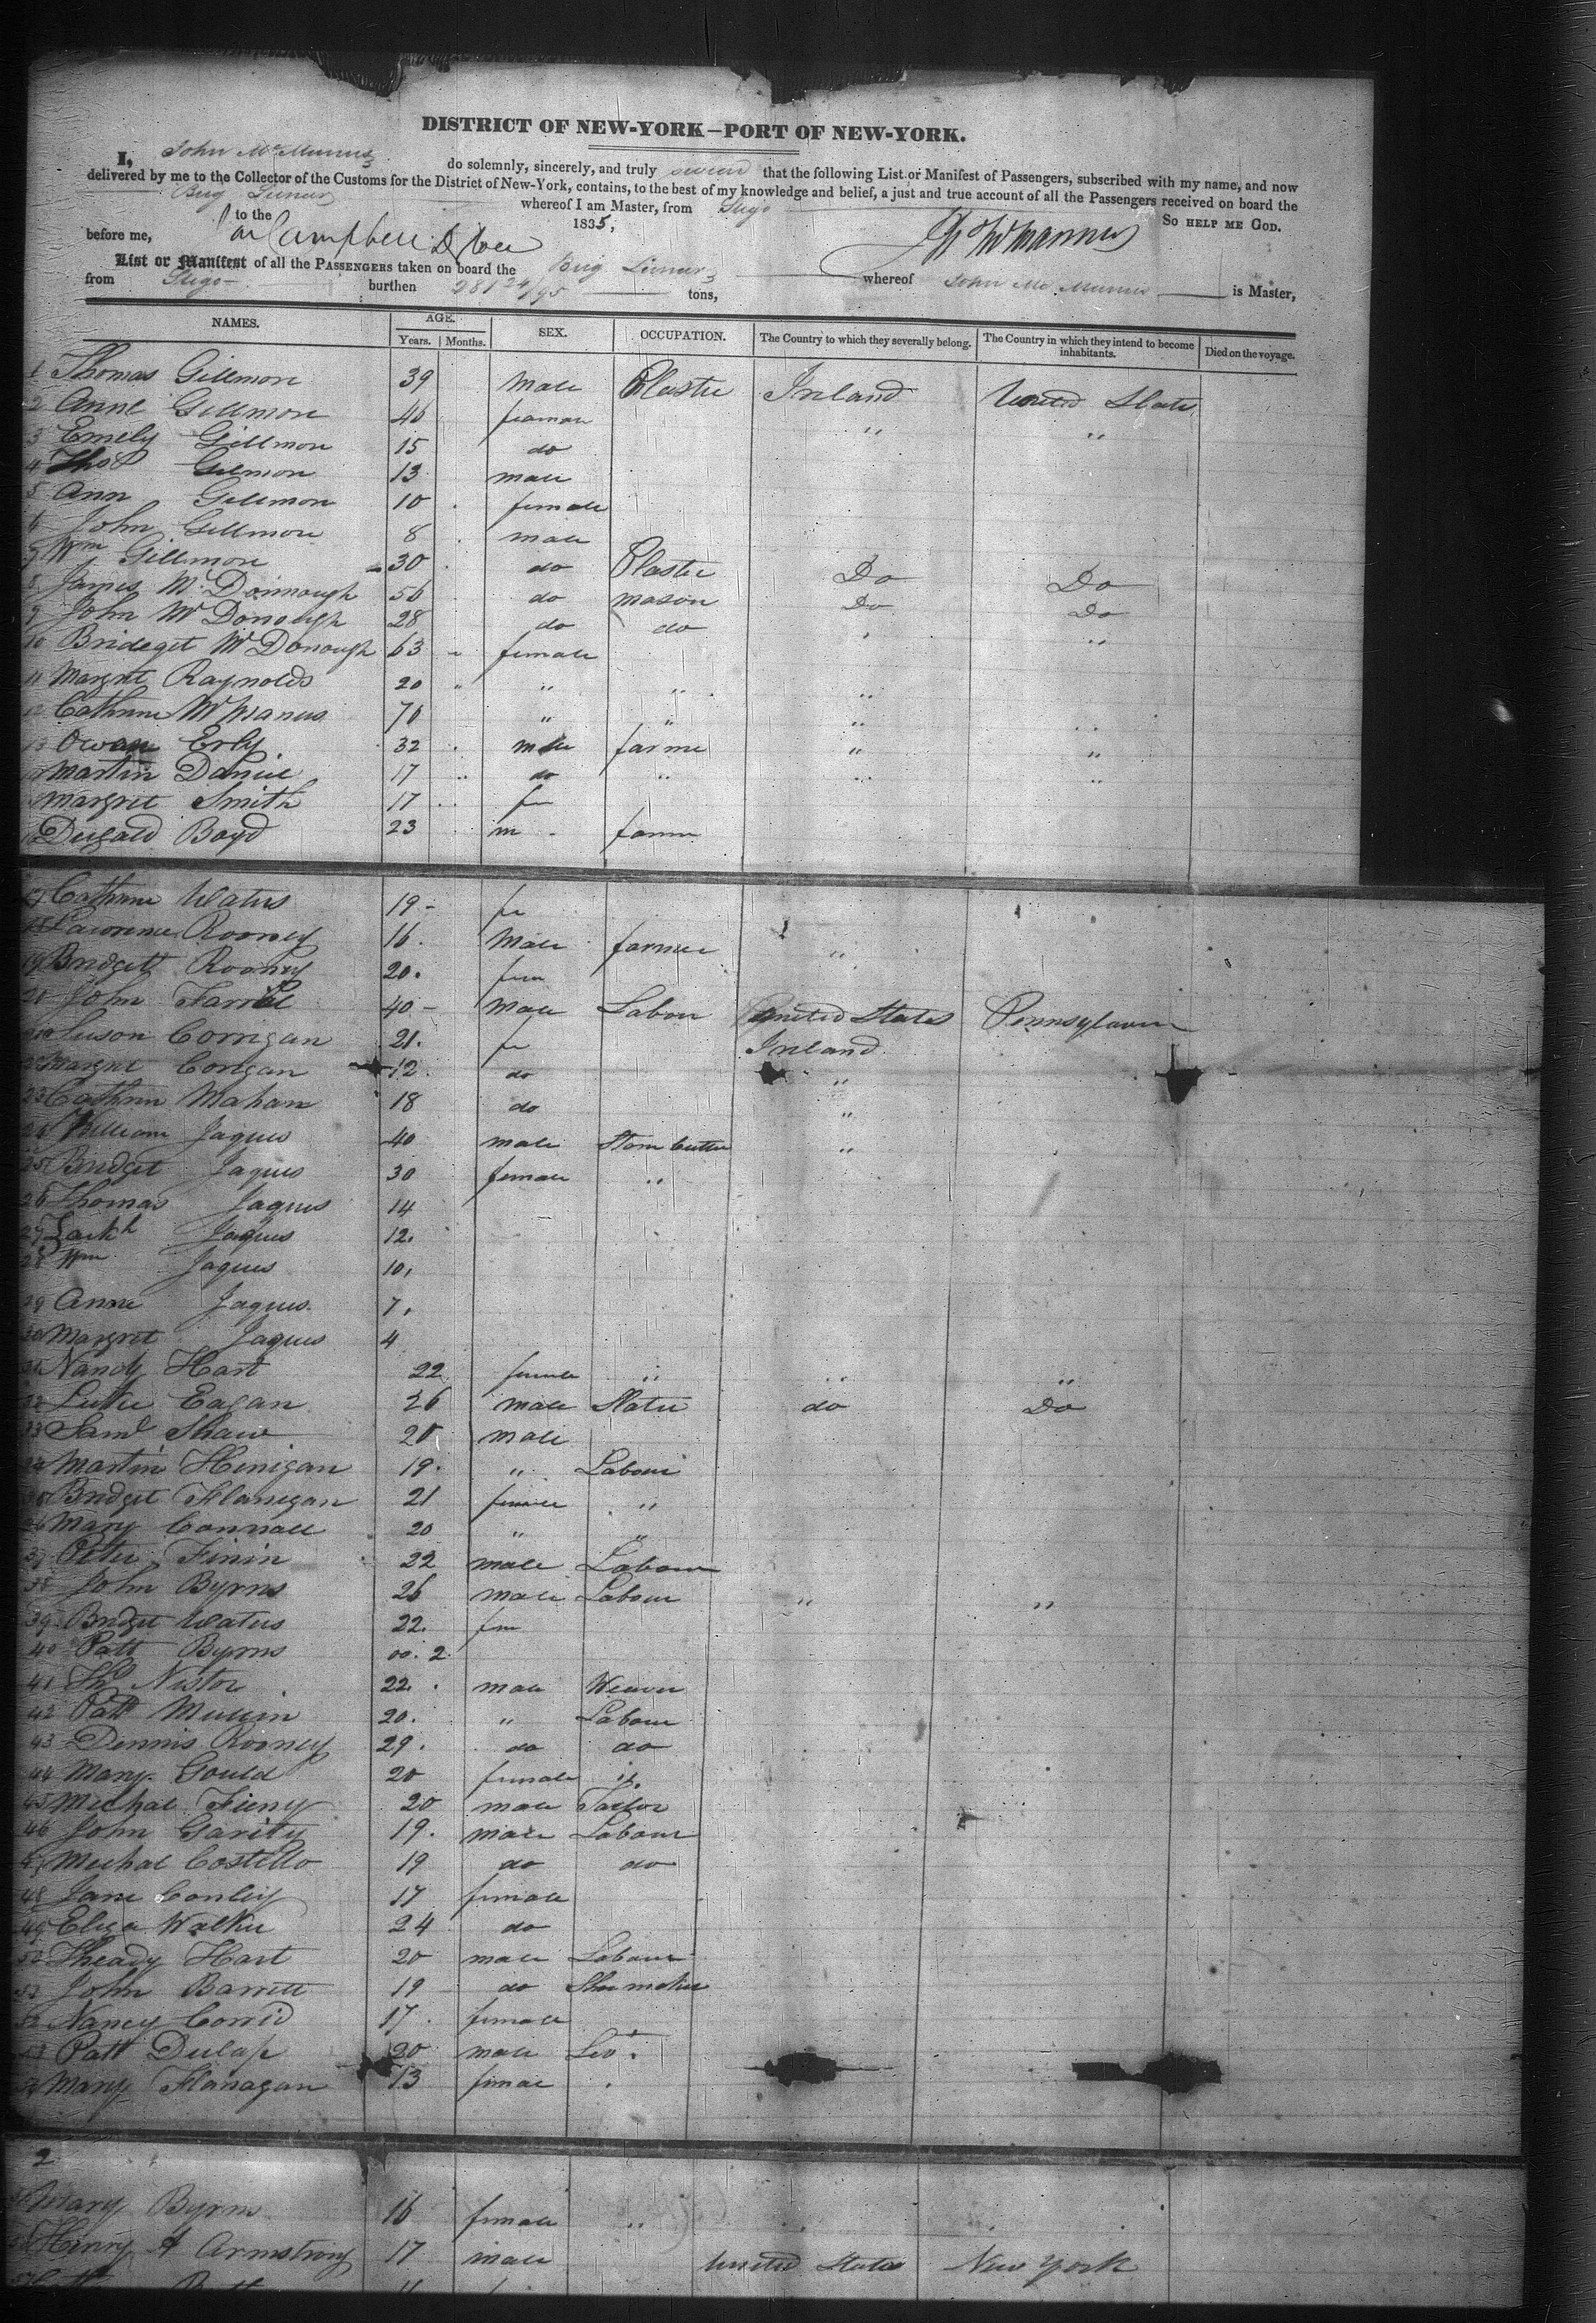 DISTRICT OF NEW-YORK—PORT OF NEW-YORK.
I, John McManus do solemnly, sincerely, and truly swear that the following List or Manifest of Passengers, subscribed with my name, and now
delivered by me to the Collector of the Customs for the District of New-York, contains, to the best of my knowledge and belief, a just and true account of all the Passengers received on board the
Brig whereof I am Master, from Sligo
to the 1835, So HELP ME GOD.
before me, Campbell
List or Manifest of all the PASSENGERS taken on board the Brig whereof John McManus is Master,
from Sligo burthen 281 24/95 tons,
NAMES. AGE. SEX. OCCUPATION. The Country to which they severally belong. The Country in which they intend to become inhabitants. Died on the voyage.
Years. Months.
1 Thomas Gillmore 39 Male Plaster Ireland United States
2 Anne Gillmore 46 " "
3 Emely Gillmon 15 do
4 Thos Gilmon 13 male
5 Ann Gillmon 10 female
6 John Gillmon 8 male
7 Wm Gillmore 30 do Plaster Do Do
8 James McDonnough 56 do mason Do Do
9 John McDonough 28 do do "
10 Brideget McDonough 63 female
11 Margret Raynolds 20 " " "
12 Cathrine McManus 70 " " "
13 Owan Erly 32 male farme " "
14 Martin Daniel 17 do " " "
15 Margret Smith 17 fe
16 Dugald Boyd 23 m farmer
17 Cathrine Waters 19 fe
18 Lawrence Rooney 16 Male farmer "
19 Bridgett Rooney 20 fem
20 John Farrel 40 Male Labour United States Pennsylvania
21 Suson Corrigan 21 fe Ireland
22 Margret Corigan 12 do "
23 Cathrin Mahan 18 do "
24 William Jaques 40 male Stone Cutter "
25 Bridget Jaques 30 female "
26 Thomas Jaques 14
27 Jaques 12
28 Wm Jaques 10
29 Anne Jaques 7
30 Margret Jaques 4
31 Nancy Hart 22 female " " "
32 Luke Eagan 26 male Slater do Do
33 Saml Shaw 20 male
34 Martin Henigan 19 " Labour
35 Bridget Flanigan 21 female "
36 Mary Connall 20 " "
37 Peter Finin 22 male Labour
38 John Byrns 26 male Labour " "
39 Bridget Waters 22 fem
40 Patt Byrns 00 2
41 Thos Nistor 22 male Weaver
42 Patt 20 " Labour
43 Dennis Rooney 29 do do
44 Mary Gould 20 female "
45 Michal Fieny 20 male Tailor
46 John Garity 19 male Labour
47 Michal Costello 19 do do
48 Jane Conley 17 female
49 Eliza Walker 24 do
50 Theady Hart 20 male Labour
51 John Barrett 19 do Shumaker
52 Nancy 17 female
53 Patt Dulap 20 male
54 Mary Flanagan 13
2
55 Mary Byrns 16 female "
56 Henry A Armstrong 17 male United States New York